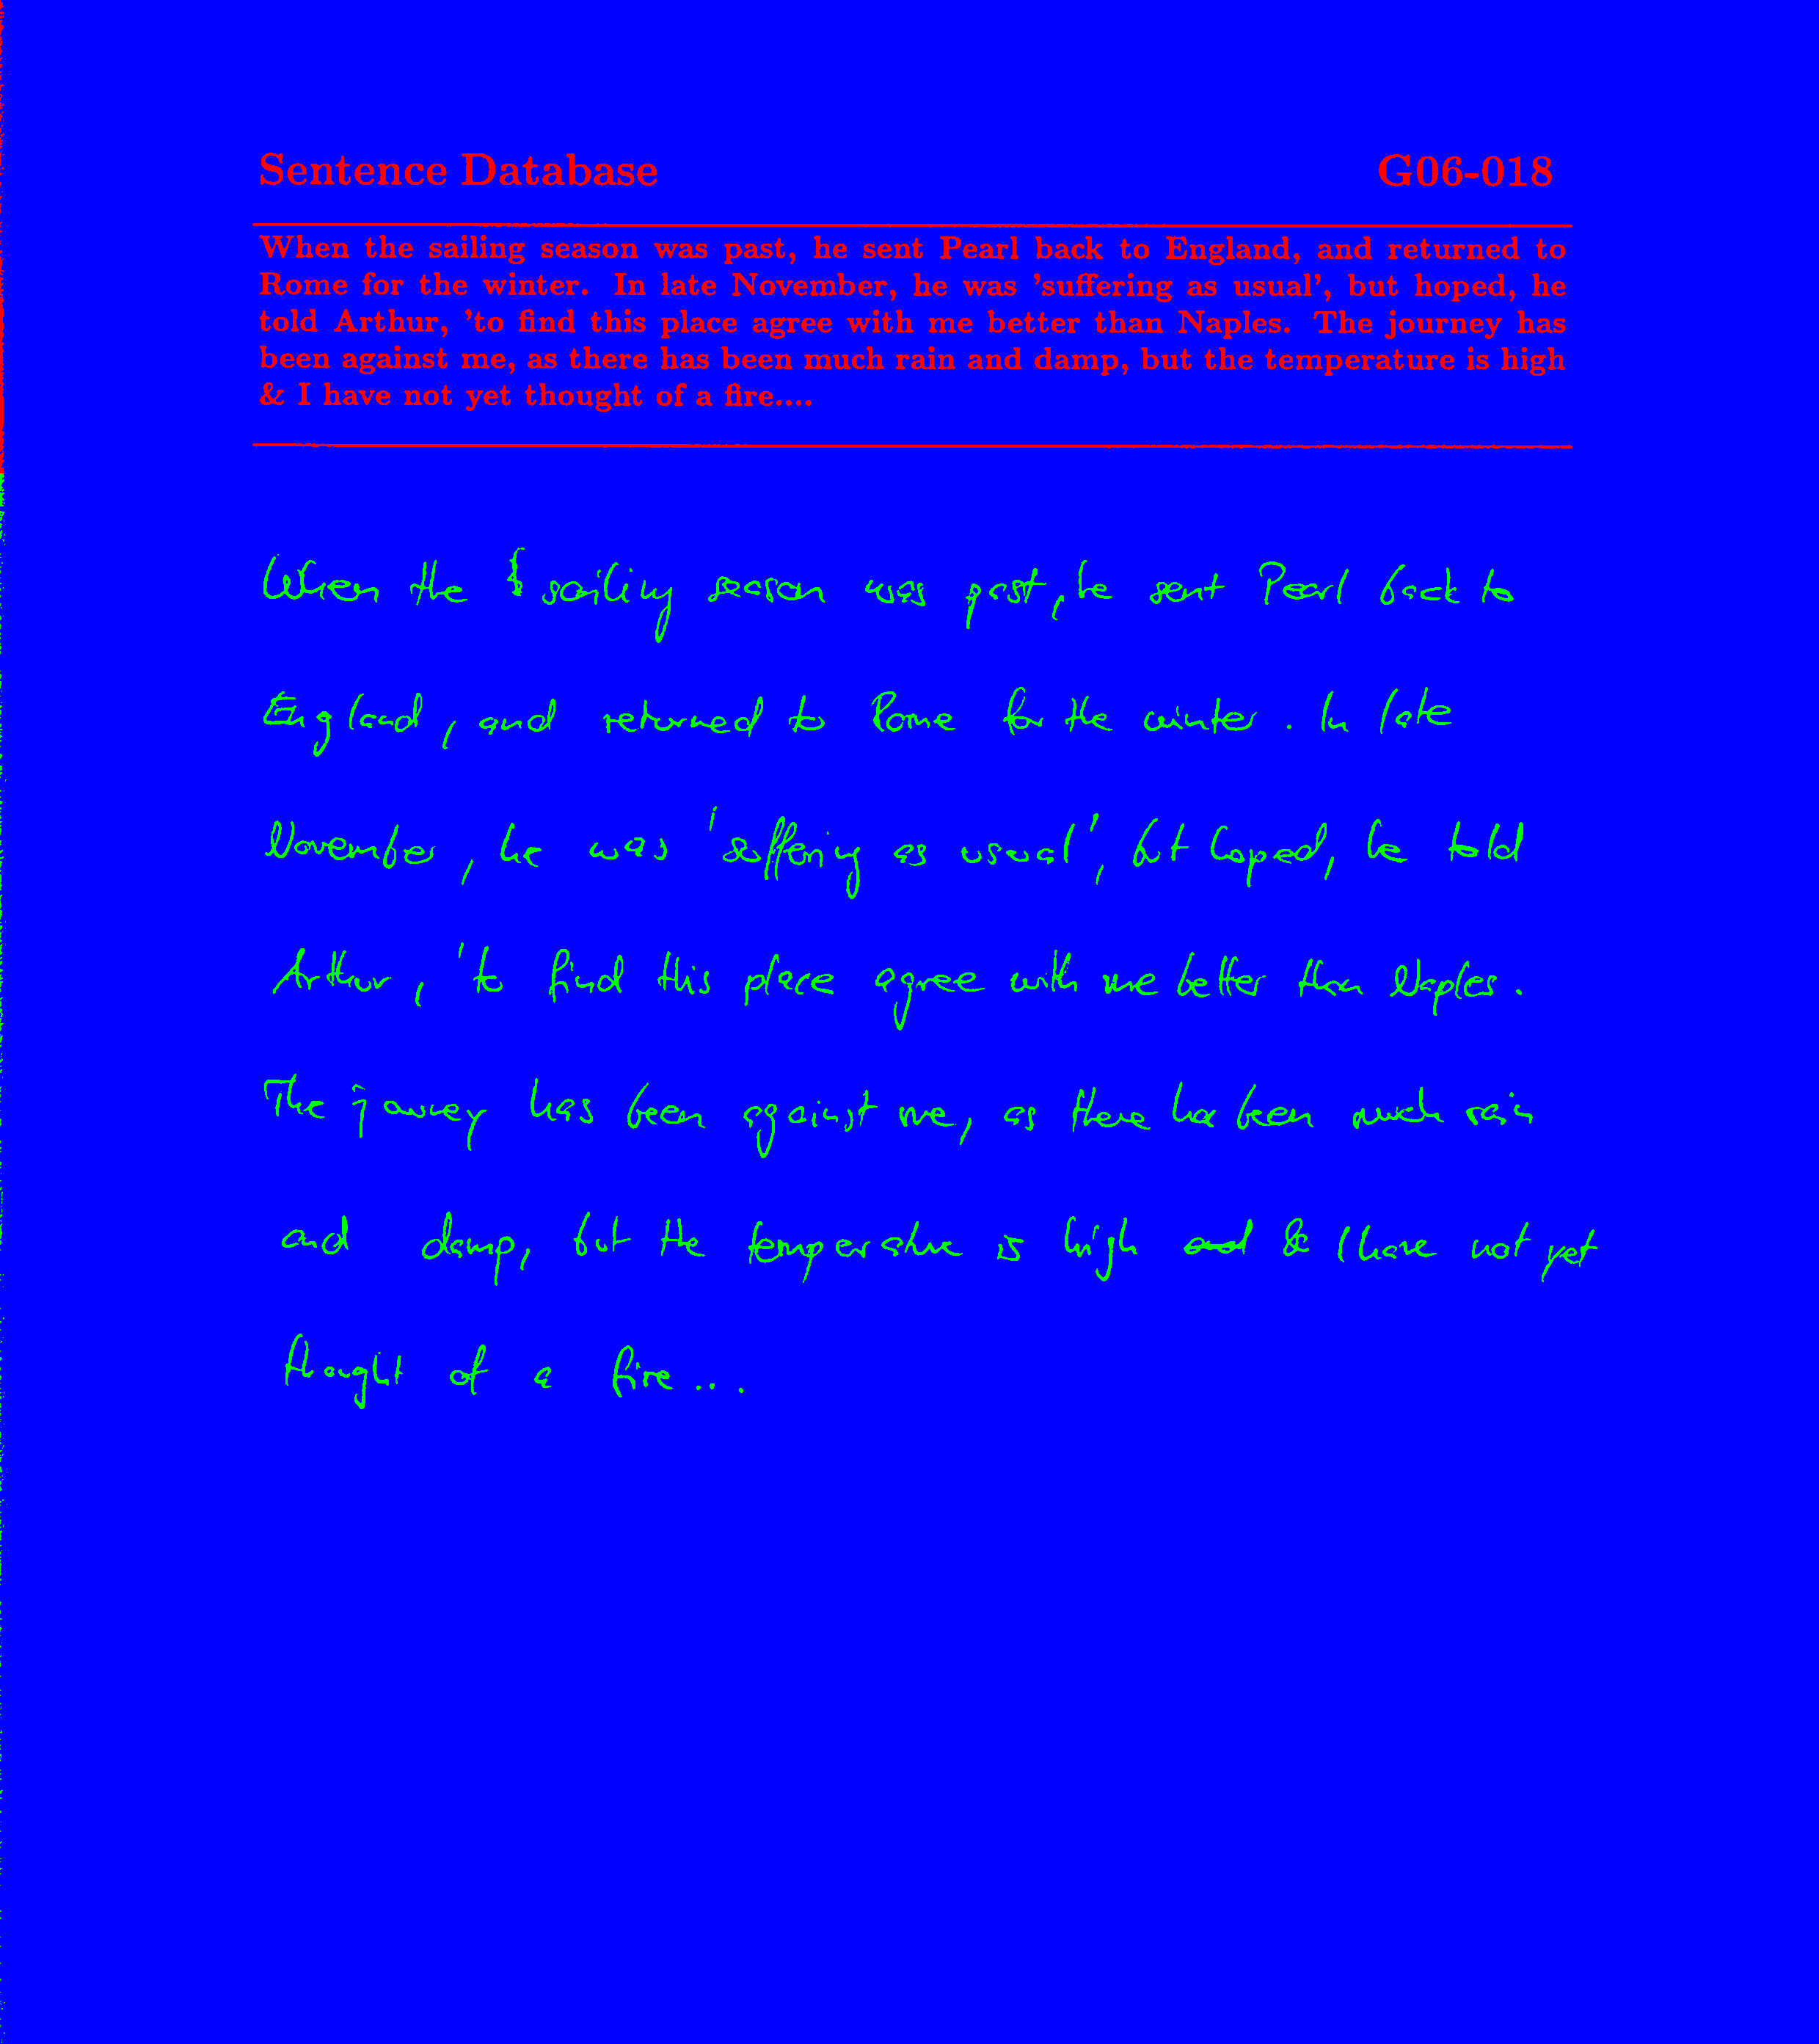 Sentence Database G06-018
When the sailing season was past, he sent Pearl back to England, and returned to
Rome for the winter. In late November, he was 'suffering as usual', but hoped, he
told Arthur, 'to find this place agree with me better than Naples. The journey has
been against me, as there has been much rain and damp, but the temperature is high
& I have not yet thought of a fire....
When the sailing season was past, he sent Pearl back to
England, and returned to Rome for the winter. In late
November, he was 'suffering as usual', but hoped, he told
Arthur, 'to find this place agree with me better than Naples.
The journey has been against me, as there has been much rain
and damp, but the temperature is high and & I have not yet
thought of a fire...